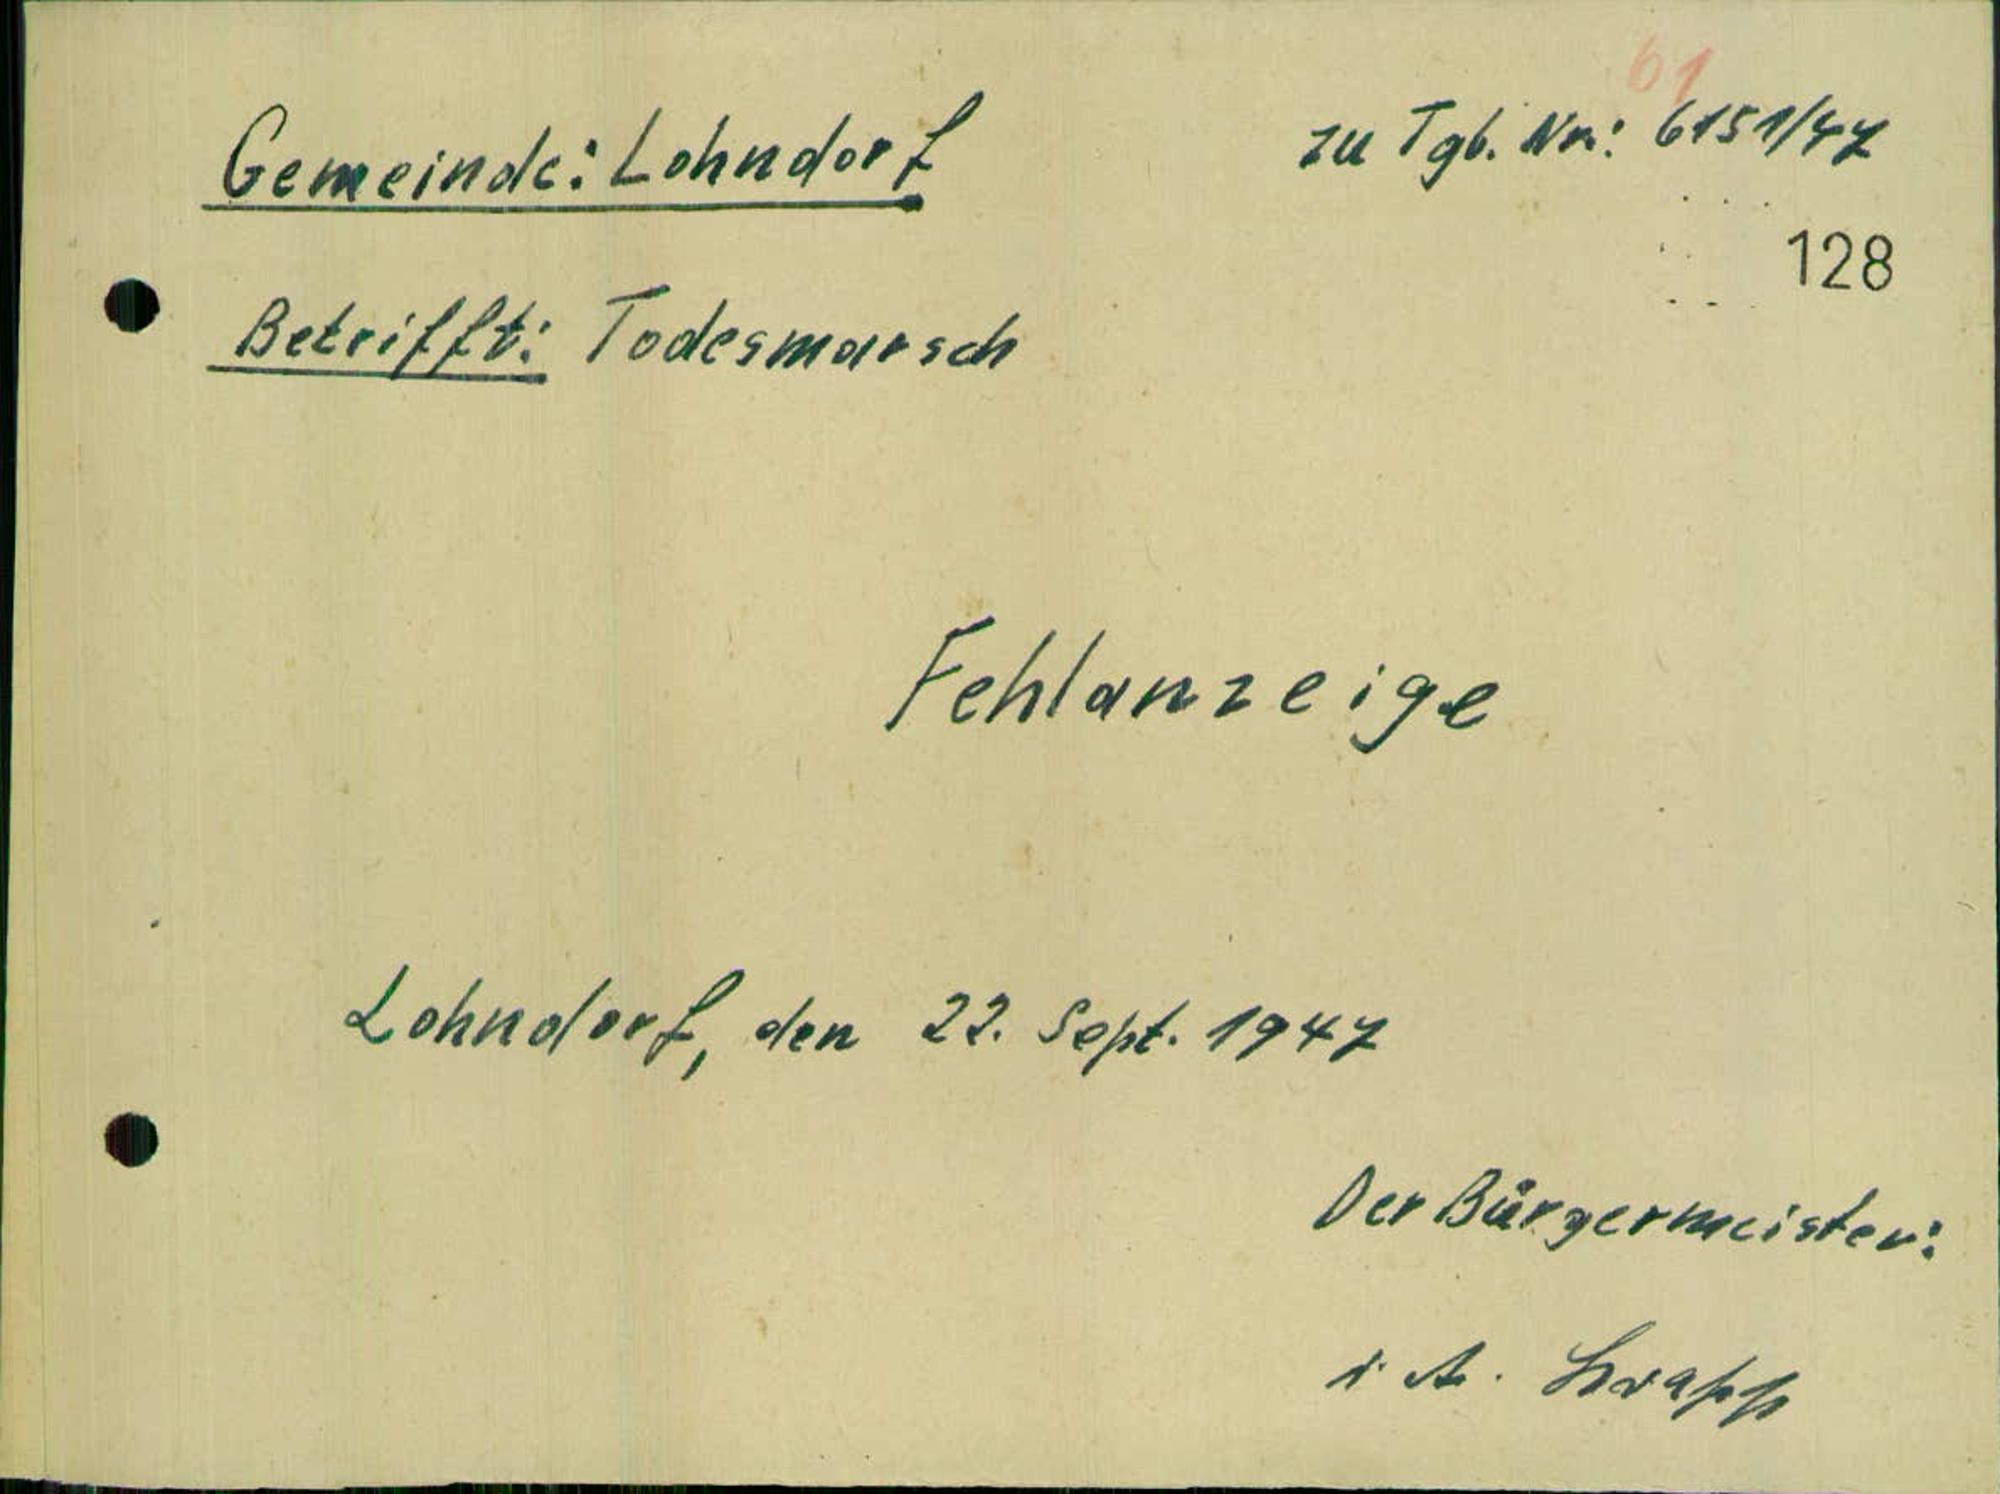 61
Gemeinde: Lohndorf
zu Tgb. Nr.: 6151/47
128
Betrifft: Todesmarsch
Fehlanzeige
Lohndorf, den 22. Sept. 1947
Der Bürgermeister:
i. A.